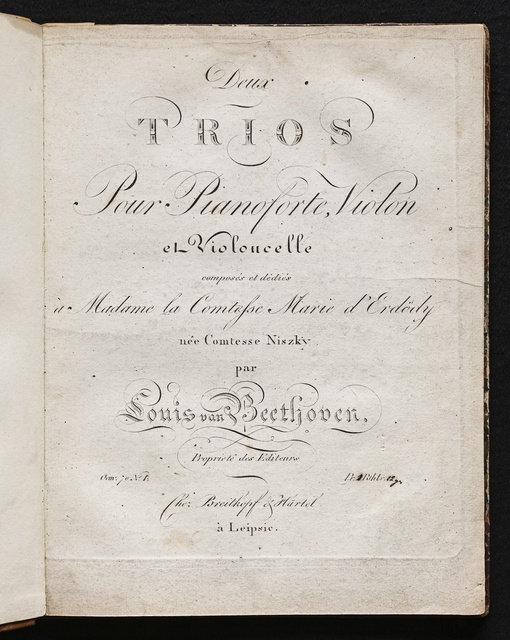 Deux
TRIOS
Pour Pianoforte, Violon
et Violoncelle
composés et dédiés
à Madame la Comtesse Marie d'Erdödy
née Comtesse Niszky
par
Louis van Beethoven.
Propriété des Editeurs
Oeuv. 70 No. 1.
Pr. 1 Rthlr. 12
Chez Breitkopf & Härtel
à Leipsic.